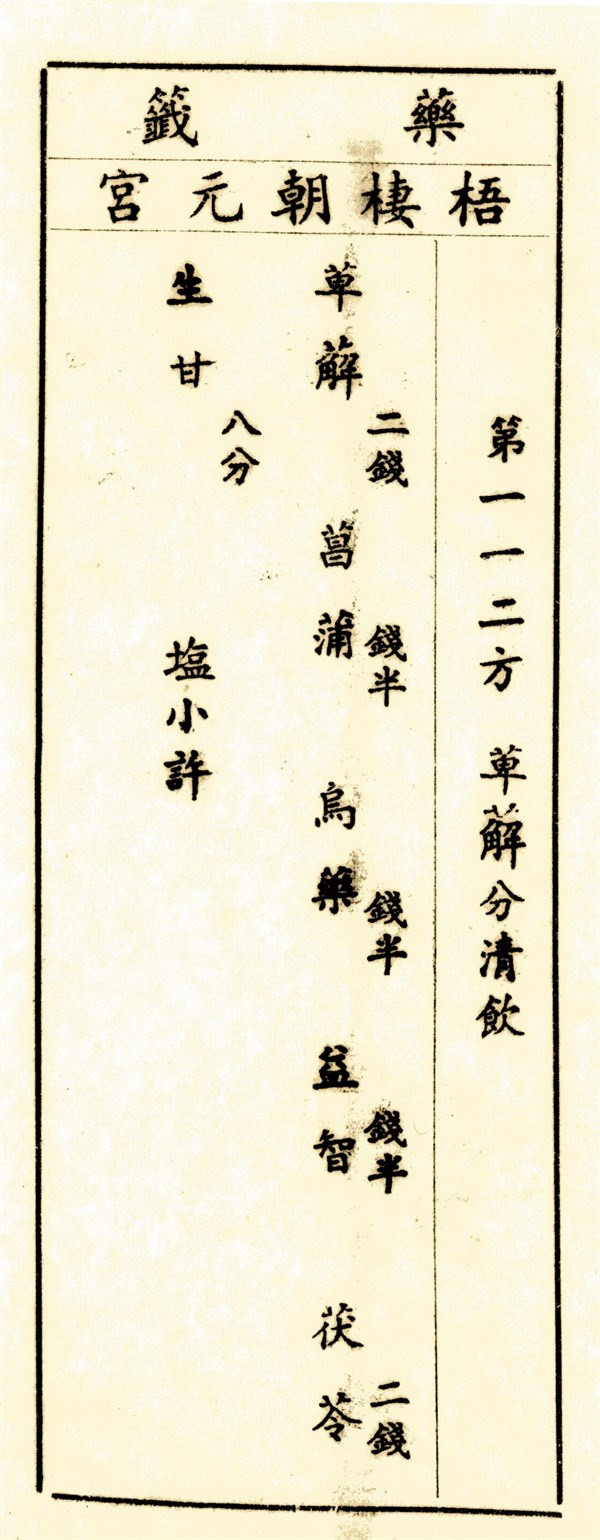 藥籤
梧棲朝元宮
第一一二方 萆薢分清飲
萆薢二錢 菖蒲錢半 烏藥錢半 益智錢半 茯苓二錢
生甘八分 塩小許